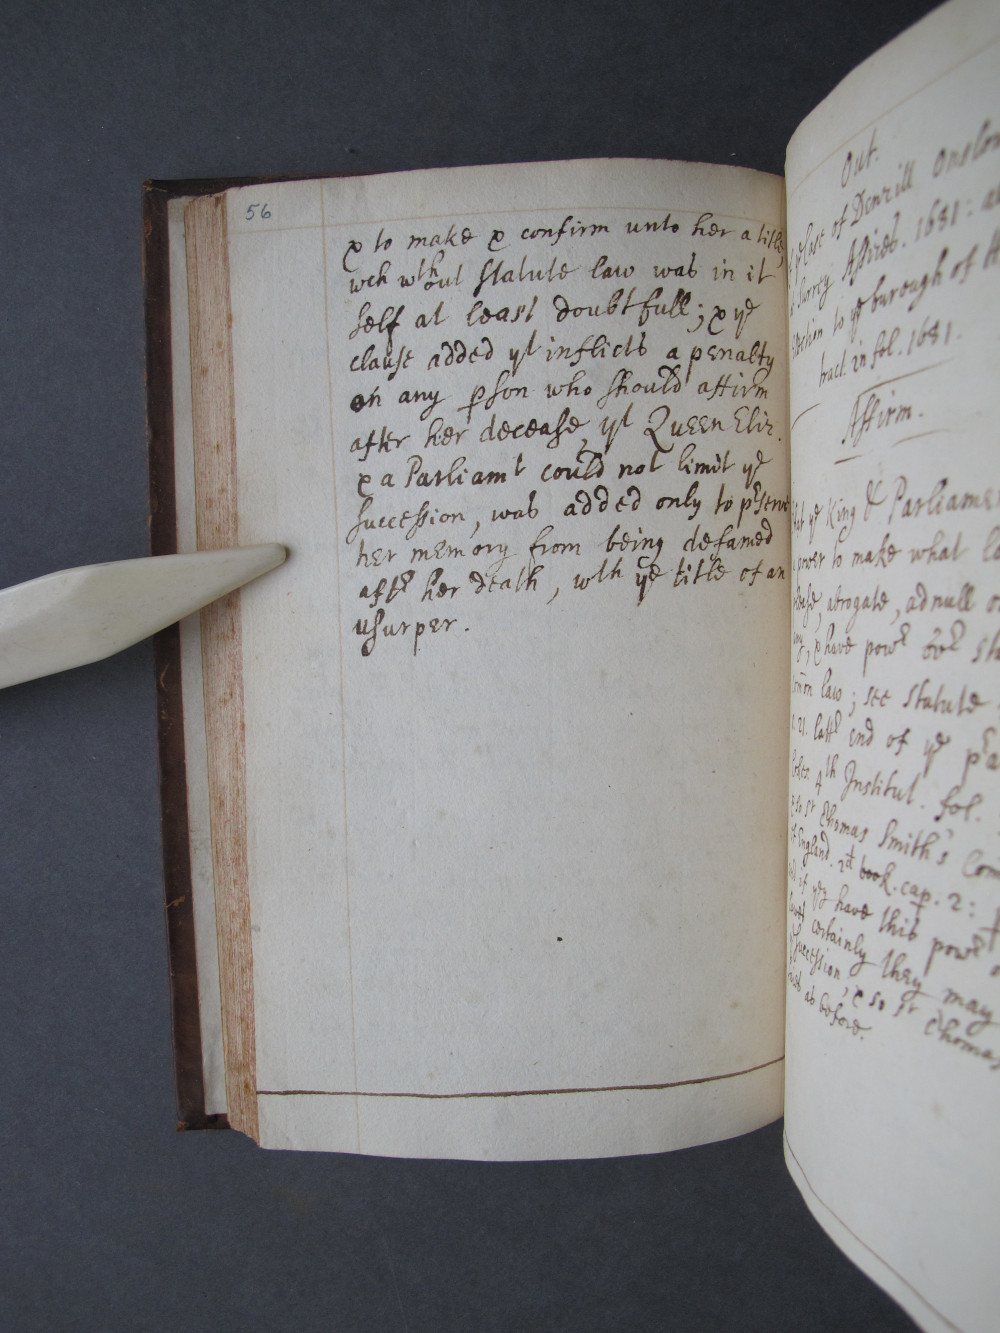 56
& to make & confirm unto her a title,
wch wthout Statute law was in it
self at least doubtfull; & ye
clause added yt inflicts a penalty
on any pson who should affirm
after her decease, yt Queen Eliz.
& a Parliamt could not limit ye
succession, was added only to pserve
her memory from being defamed
aftr her death, wth ye title of an
usurper.
Out.
ye Case of Denzill Onslow
Surrey Assizes. 1681:
Election to ye burough of
tract. in fol. 1681.
Affirm.
yt ye King & Parliament
power to make what
abrogate, adnull or
& have powr ovr
law; see Statute
21. last end of ye
4th Institut. fol.
so Sr Thomas Smith's
of England. 2d book. cap. 2:
if yy have this powr
certainly they may
Succession, & so Sr Thomas
as before.